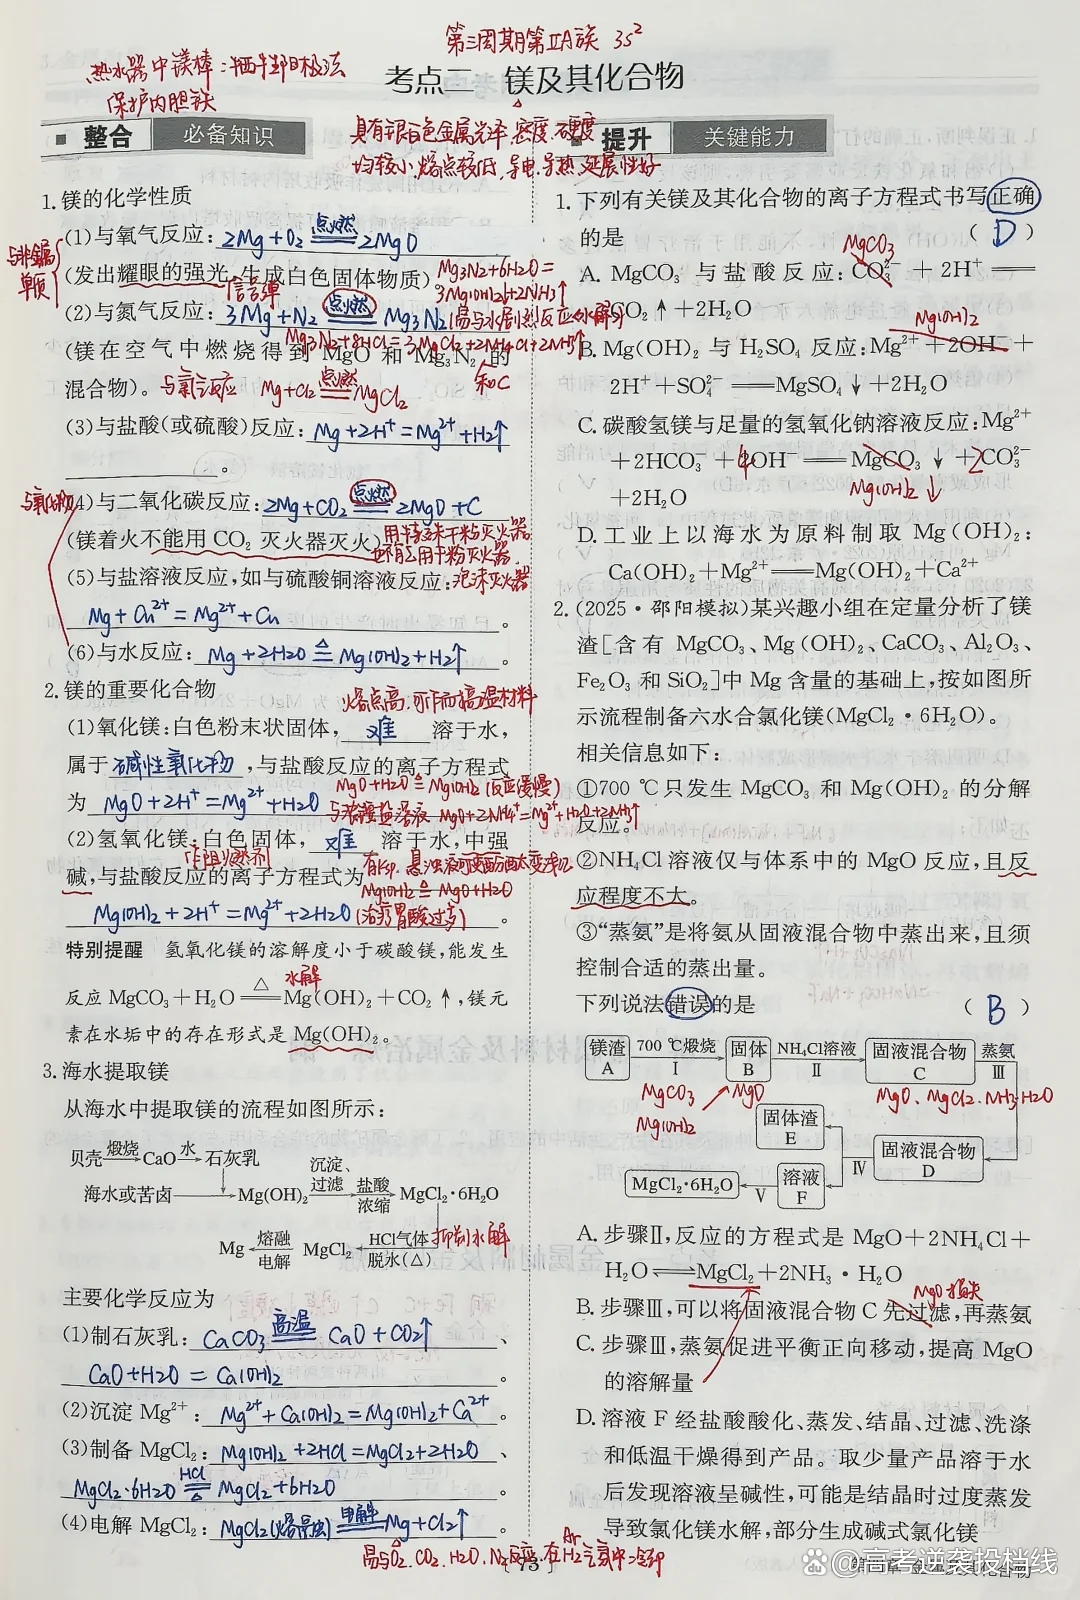 第三周期第ⅡA族 3s²
热水器中镁棒:牺牲阳极法
保护内胆铁
考点二 镁及其化合物
整合 必备知识
具有银白色金属光泽,密度、硬度
均较小,熔点较低,导电、导热、延展性好
1.镁的化学性质
与非金属单质
(1)与氧气反应: 2Mg+O₂ ══(点燃) 2MgO
(发出耀眼的强光,生成白色固体物质)
信号弹
Mg₃N₂+6H₂O=
3Mg(OH)₂↓+2NH₃↑
(2)与氮气反应: 3Mg+N₂ ══(点燃) Mg₃N₂ (易与水剧烈反应(水解))
Mg₃N₂+8HCl=3MgCl₂+2NH₄Cl
(镁在空气中燃烧得到 MgO 和 Mg₃N₂ 的
和C
混合物)。 与氯气反应 Mg+Cl₂ ══(点燃) MgCl₂
(3)与盐酸(或硫酸)反应: Mg+2H⁺=Mg²⁺+H₂↑
。
与氧化物
(4)与二氧化碳反应: 2Mg+CO₂ ══(点燃) 2MgO+C
(镁着火不能用 CO₂ 灭火器灭火) 用特殊干粉灭火器
(5)与盐溶液反应,如与硫酸铜溶液反应: 泡沫灭火器
Mg+Cu²⁺=Mg²⁺+Cu 。
(6)与水反应: Mg+2H₂O ══(△) Mg(OH)₂+H₂↑ 。
2.镁的重要化合物
熔点高,可作耐高温材料
(1)氧化镁:白色粉末状固体, 难 溶于水,
属于 碱性氧化物 ,与盐酸反应的离子方程式
MgO+H₂O ══(△) Mg(OH)₂ (反应缓慢)
为 MgO+2H⁺=Mg²⁺+H₂O
与浓铵盐溶液 MgO+2NH₄⁺=Mg²⁺+H₂O+2NH₃↑
(2)氢氧化镁:白色固体, 难 溶于水,中强
作阻燃剂
碱,与盐酸反应的离子方程式为
Mg(OH)₂ ══(△) MgO+H₂O
Mg(OH)₂+2H⁺=Mg²⁺+2H₂O (治疗胃酸过多) 。
特别提醒 氢氧化镁的溶解度小于碳酸镁,能发生
水解
反应 MgCO₃+H₂O ══(△) Mg(OH)₂+CO₂↑,镁元
素在水垢中的存在形式是 Mg(OH)₂。
3.海水提取镁
从海水中提取镁的流程如图所示:
贝壳 煅烧→ CaO 水→ 石灰乳
海水或苦卤 → Mg(OH)₂ 沉淀、过滤→ 盐酸 浓缩→ MgCl₂·6H₂O
抑制水解
Mg ←熔融 电解 MgCl₂ ←HCl气体 脱水(△)
主要化学反应为
(1)制石灰乳: CaCO₃ ══(高温) CaO+CO₂↑
CaO+H₂O=Ca(OH)₂ 。
(2)沉淀 Mg²⁺: Mg²⁺+Ca(OH)₂=Mg(OH)₂+Ca²⁺ 。
(3)制备 MgCl₂: Mg(OH)₂+2HCl=MgCl₂+2H₂O 、
MgCl₂·6H₂O ══(HCl △) MgCl₂+6H₂O 。
(4)电解 MgCl₂: MgCl₂(熔融) ══(电解) Mg+Cl₂↑ 。
易与O₂、CO₂、H₂O、N₂反应,在H₂气氛中冷却
Ar
73
提升 关键能力
1.下列有关镁及其化合物的离子方程式书写正确
的是 ( D )
MgCO₃
A. MgCO₃ 与盐酸反应:CO₃²⁻+2H⁺══
CO₂↑+2H₂O
Mg(OH)₂
B. Mg(OH)₂ 与 H₂SO₄ 反应:Mg²⁺+2OH⁻+
2H⁺+SO₄²⁻══MgSO₄↓+2H₂O
C. 碳酸氢镁与足量的氢氧化钠溶液反应:Mg²⁺
+2HCO₃⁻+4OH⁻══MgCO₃↓+2CO₃²⁻
+2H₂O
Mg(OH)₂↓
D. 工业上以海水为原料制取 Mg(OH)₂:
Ca(OH)₂+Mg²⁺══Mg(OH)₂+Ca²⁺
2.(2025·邵阳模拟)某兴趣小组在定量分析了镁
渣[含有 MgCO₃、Mg(OH)₂、CaCO₃、Al₂O₃、
Fe₂O₃ 和 SiO₂]中 Mg 含量的基础上,按如图所
示流程制备六水合氯化镁(MgCl₂·6H₂O)。
相关信息如下:
①700 ℃只发生 MgCO₃ 和 Mg(OH)₂ 的分解
反应。
②NH₄Cl 溶液仅与体系中的 MgO 反应,且反
应程度不大。
③“蒸氨”是将氨从固液混合物中蒸出来,且须
控制合适的蒸出量。
下列说法错误的是 ( B )
镁渣 A 700 ℃煅烧 Ⅰ→ 固体 B NH₄Cl溶液 Ⅱ→ 固液混合物 C 蒸氨 Ⅲ
MgCO₃ MgO MgO、MgCl₂、NH₃·H₂O
Mg(OH)₂
固体渣 E
Ⅳ 固液混合物 D
MgCl₂·6H₂O ←Ⅴ 溶液 F
A. 步骤Ⅱ,反应的方程式是 MgO+2NH₄Cl+
H₂O⇌MgCl₂+2NH₃·H₂O
MgO损失
B. 步骤Ⅲ,可以将固液混合物 C 先过滤,再蒸氨
C. 步骤Ⅲ,蒸氨促进平衡正向移动,提高 MgO
的溶解量
D. 溶液 F 经盐酸酸化、蒸发、结晶、过滤、洗涤
和低温干燥得到产品。取少量产品溶于水
后发现溶液呈碱性,可能是结晶时过度蒸发
导致氯化镁水解,部分生成碱式氯化镁
知乎 @高考逆袭投档线